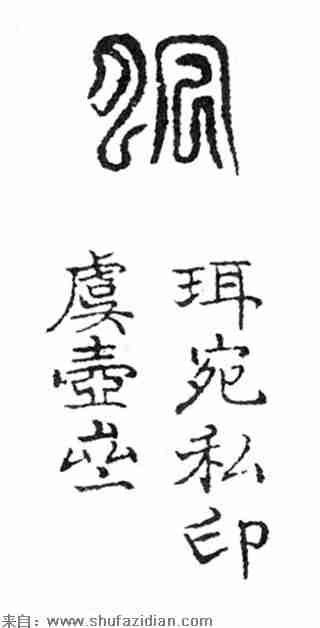 珥宛私印
虞壺
来自：www.shufazidian.com